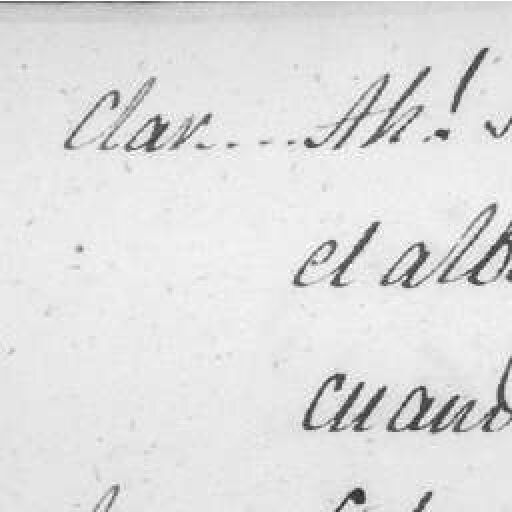 Clar.... Ah!
el alb
cuand